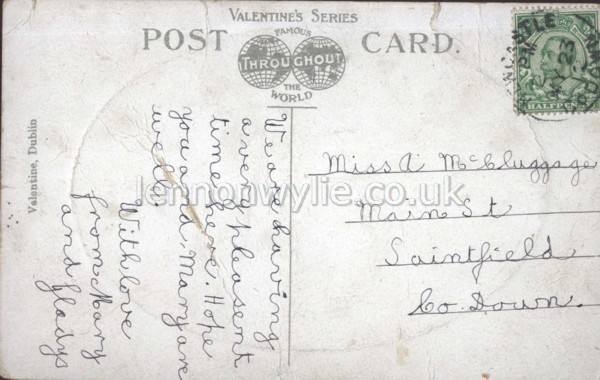 VALENTINE'S SERIES
POST CARD.
FAMOUS
THROUGHOUT
THE
WORLD
HALFPENNY
23
Valentine, Dublin
We are having
a very pleasent
time here. Hope
you and Mary are
well.
With love
from Mary
and Gladys
Miss A McCluggage
Main St
Saintfield
Co. Down.
lennonwylie.co.uk